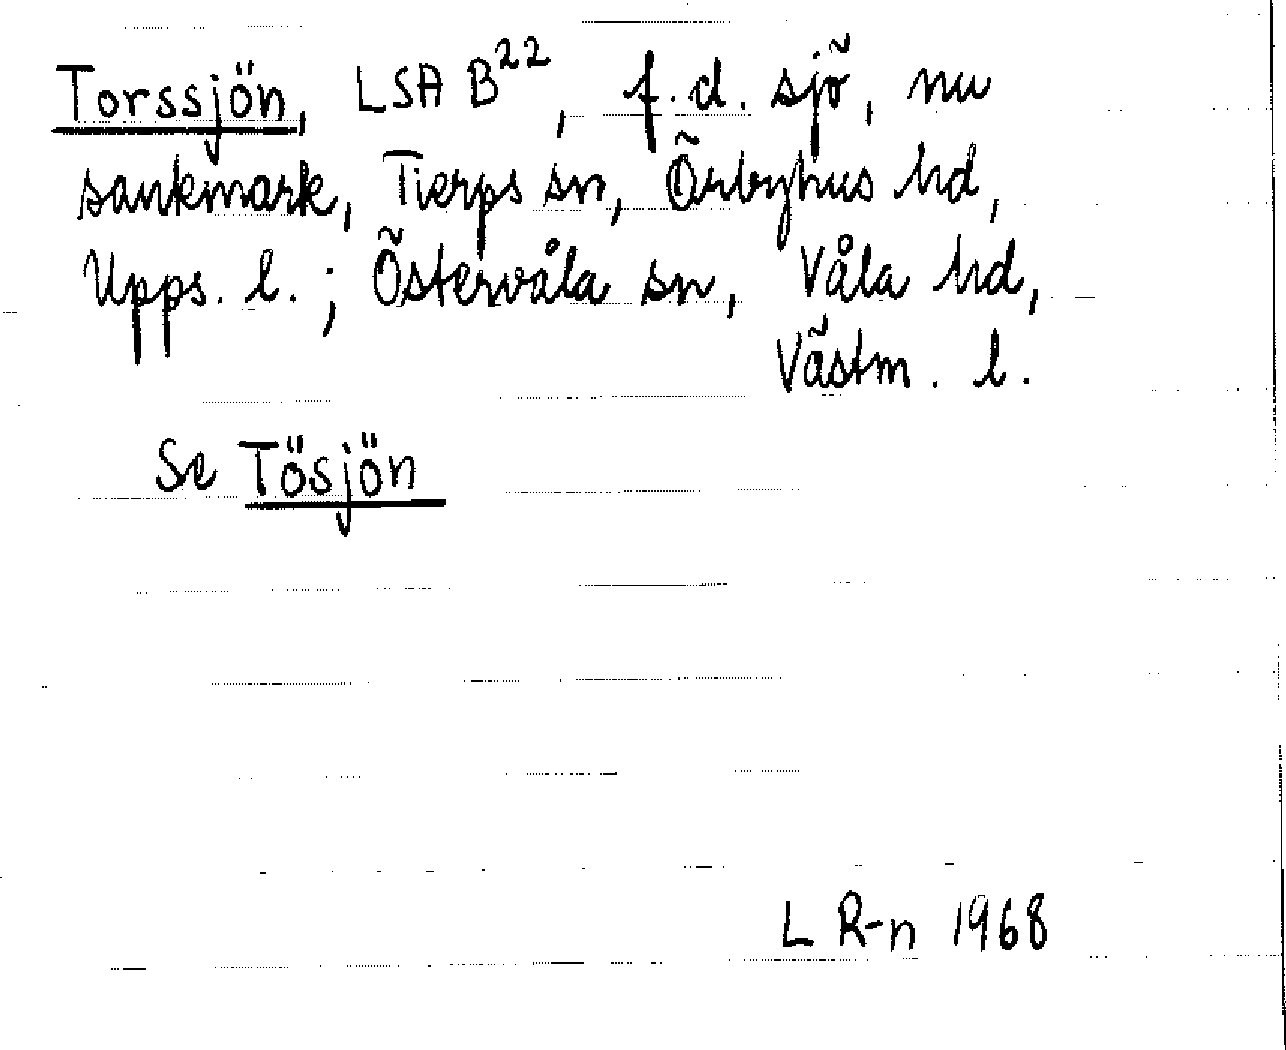 Torssjön, LSA B²², f.d. sjö, nu
sankmark, Tierps sn, Örbyhus hd,
Upps. l. ; Östervåla sn, Våla hd,
Västm. l.
Se Tösjön
L R-n 1968